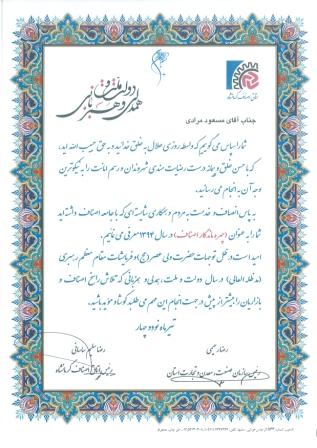 دولت و ملت
همدلی و هم زبانی
اتاق اصناف کرمانشاه
جناب آقای مسعود مرادی
شما را سپاس می گوییم که واسطه روزی حلال به خلق خدائید و به حق حبیب الله اید،
که با حسن خلق و جلب رضایت مندی شهروندان و رسم امانت را به نیکوترین
وجه آن به انجام می رسانید.
به پاس انصاف و خدمت به مردم و همکاری شایسته ای که با جامعه اصناف داشته اید
شما را به عنوان (چهره ماندگار اصناف) در سال ۱۳۹۴ معرفی می نمائیم.
امید است در ظل توجهات حضرت ولی عصر (عج) و فرمایشات مقام معظم رهبری
(مدظله العالی) در سال دولت و ملت، همدلی و همزبانی که تلاش راسخ اصناف و
بازاریان را بیشتر از پیش در جهت انجام این مهم می طلبد کوشا و مؤید باشید.
تیرماه نود و چهار
رضا رحیمی
رئیس سازمان صنعت، معدن و تجارت استان
رضا سلیم ساسانی
رئیس اتاق اصناف کرمانشاه